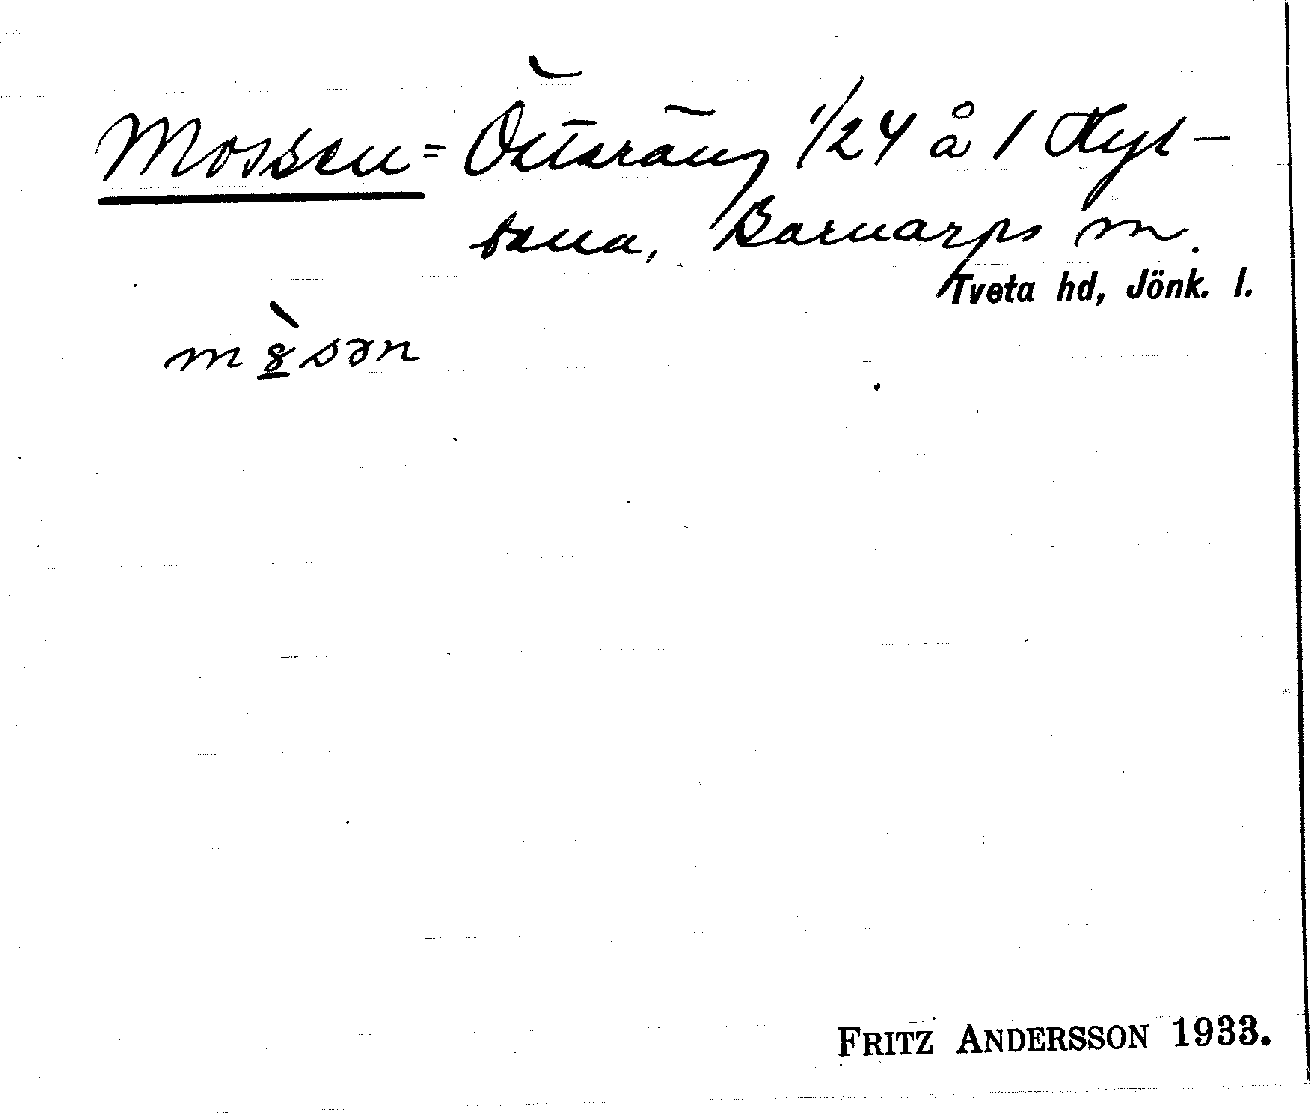 Mossen = Österäng 1/24 å 1 Hyl-
tena, Barnarps sn.
Tveta hd, Jönk. l.
m8̲̀sən
FRITZ ANDERSSON 1933.